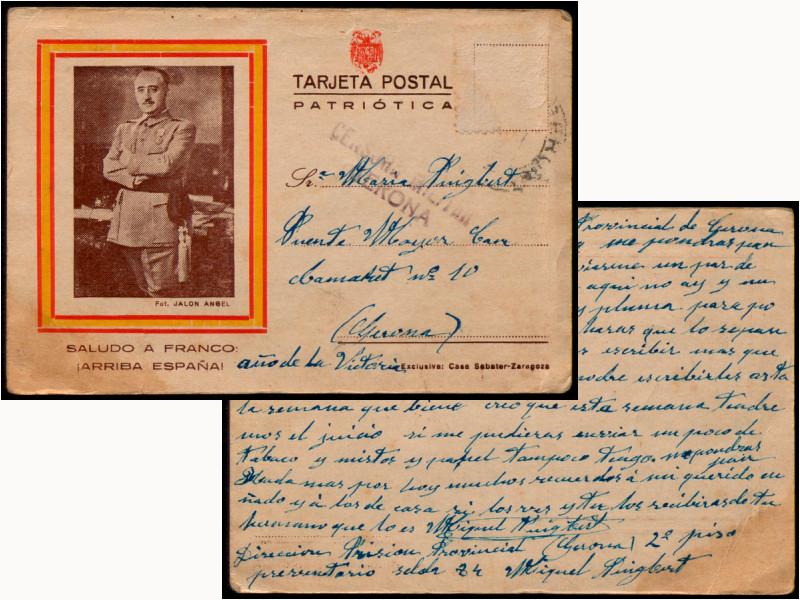 TARJETA POSTAL
PATRIÓTICA
CENSURA MILITAR
GERONA
Sra Maria Puigbert
Puente Mayor Carr
Camaret nº 10
(Gerona)
Fot. JALON ANGEL
SALUDO A FRANCO:
¡ARRIBA ESPAÑA!
año de la Victoria
Exclusiva: Casa Sabater-Zaragoza
Provincial de Gerona
y me pondras pan
un par de
aqui no ay y un
y pluma para po
haras que lo sepan
escribir mas que
podre escribirles asta
la semana que biene creo que esta semana tendre
mos el juicio si me pudieras enviar un poco de
tabaco y mistos y papel tampoco tengo me pondras pan
Nada mas por hoy muchos recuerdos a mi querido cu
ñado y a los de casa si los ves y tu los recibiras de tu
hermano que lo es Miguel Puigbert
Direccion Prision Provincial (Gerona) 2º piso
selda 24 Miguel Puigbert